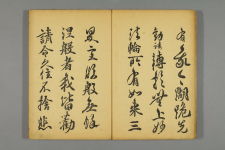 有我今胡跪先
勸請轉於無上妙
法輪所有如來三
界主臨般無餘
涅槃者我皆勸
請令久住不捨悲